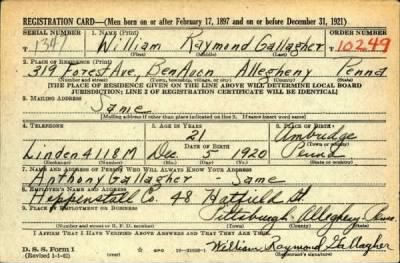 REGISTRATION CARD—(Men born on or after February 17, 1897 and on or before December 31, 1921)
SERIAL NUMBER 1. NAME (Print) ORDER NUMBER
T 1347 William Raymond Gallagher T 10249
2. PLACE OF RESIDENCE (Print)
319 Forest Ave, Ben Avon Allegheny Penna
(Number and street) (Town, township, village, or city) (County) (State)
[THE PLACE OF RESIDENCE GIVEN ON THE LINE ABOVE WILL DETERMINE LOCAL BOARD
JURISDICTION; LINE 2 OF REGISTRATION CERTIFICATE WILL BE IDENTICAL]
3. MAILING ADDRESS
Same
[Mailing address if other than place indicated on line 2. If same insert word same]
4. TELEPHONE 5. AGE IN YEARS 6. PLACE OF BIRTH
21 Ambridge
DATE OF BIRTH (Town or county)
Linden 4118M Dec. 5 1920 Penna
7. NAME AND ADDRESS OF PERSON WHO WILL ALWAYS KNOW YOUR ADDRESS
Anthony Gallagher - Same
8. EMPLOYER'S NAME AND ADDRESS
Heppenstall Co. 48 Hatfield St.
9. PLACE OF EMPLOYMENT OR BUSINESS
Pittsburgh Allegheny Penna.
(Number and street or R. F. D. number) (Town) (County) (State)
I AFFIRM THAT I HAVE VERIFIED ABOVE ANSWERS AND THAT THEY ARE TRUE.
D. S. S. Form 1
(Revised 1-1-42) William Raymond Gallagher
(Registrant's signature)